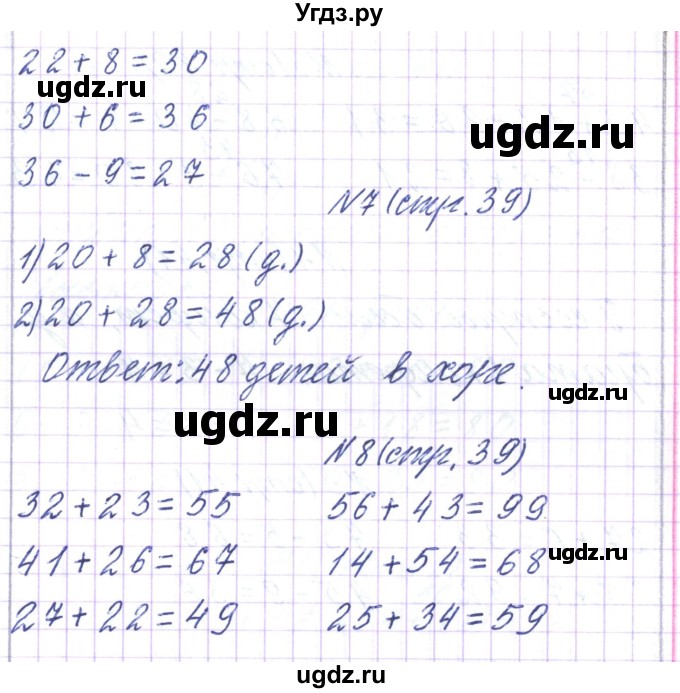 Угдз.ру
22 + 8 = 30
ugdz.ru
30 + 6 = 36
ugdz.ru
36 - 9 = 27
N7 (стр. 39)
1) 20 + 8 = 28 (д.)
2) 20 + 28 = 48 (д.)
Ответ: 48 детей в хоре.
ugdz.ru
ugdz.ru
N8 (стр. 39)
32 + 23 = 55 56 + 43 = 99
41 + 26 = 67 14 + 54 = 68
ugdz.ru
27 + 22 = 49 25 + 34 = 59
ugdz.ru
ugdz.ru